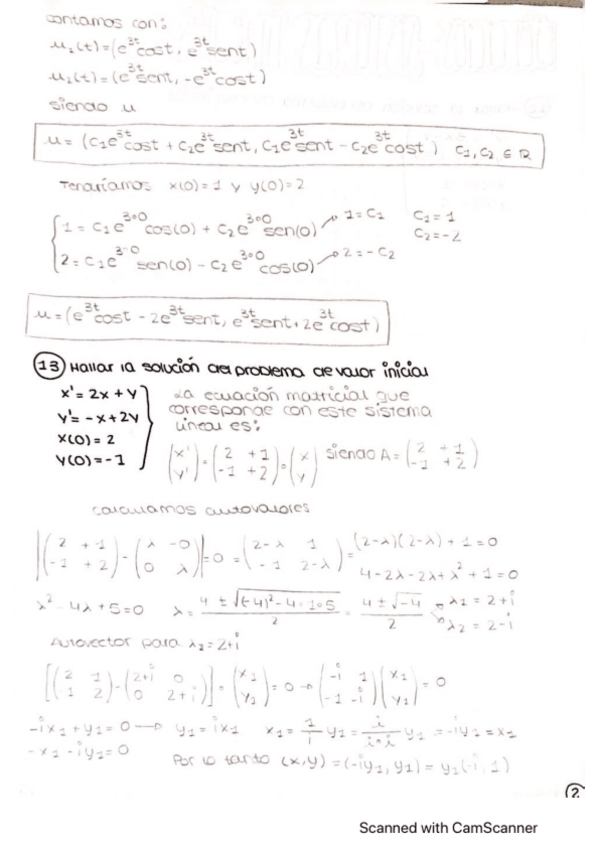 contamos con:
u₁(t)=(e^3t cost, e^3t sent)
u₂(t)=(e^3t sent, -e^3t cost)
siendo u
u = (c₁e^3t cost + c₂e^3t sent, c₁e^3t sent - c₂e^3t cost) c₁, c₂ ∈ R
Tendríamos x(0)=1 y y(0)=2
1 = c₁e^3·0 cos(0) + c₂e^3·0 sen(0) → 1=c₁ c₁=1
2 = c₁e^3·0 sen(0) - c₂e^3·0 cos(0) → 2=-c₂ c₂=-2
u=(e^3t cost - 2e^3t sent, e^3t sent + 2e^3t cost)
13 Hallar la solución del problema de valor inicial
x' = 2x + y La ecuación matricial que
y' = -x + 2y corresponde con este sistema
x(0) = 2 lineal es:
y(0) = -1 (x' y') = (2 +1 -1 +2) · (x y) siendo A = (2 +1 -1 +2)
Calculamos autovalores
|(2 +1 -1 +2) - (λ -0 0 λ)| = 0 = (2-λ 1 -1 2-λ) = (2-λ)(2-λ) + 1 = 0
4-2λ-2λ+λ²+1=0
λ²-4λ+5=0 λ = 4 ± √(-4)²-4·1·5 / 2 = 4 ± √-4 / 2 λ₁ = 2+i
λ₂ = 2-i
Autovector para λ₂=2+i
[(2 1 1 2) - (2+i 0 0 2+i)] = (x₁ y₁) = 0 → (-i 1 -1 -i)(x₁ y₁) = 0
-ix₁+y₁=0 → y₁=ix₁ x₁ = 1/i y₁ = i/i·i y₁ = -iy₁ = x₁
-x₁-iy₁=0
Por lo tanto (x,y)=(-iy₁, y₁) = y₁(-i, 1)
2
Scanned with CamScanner